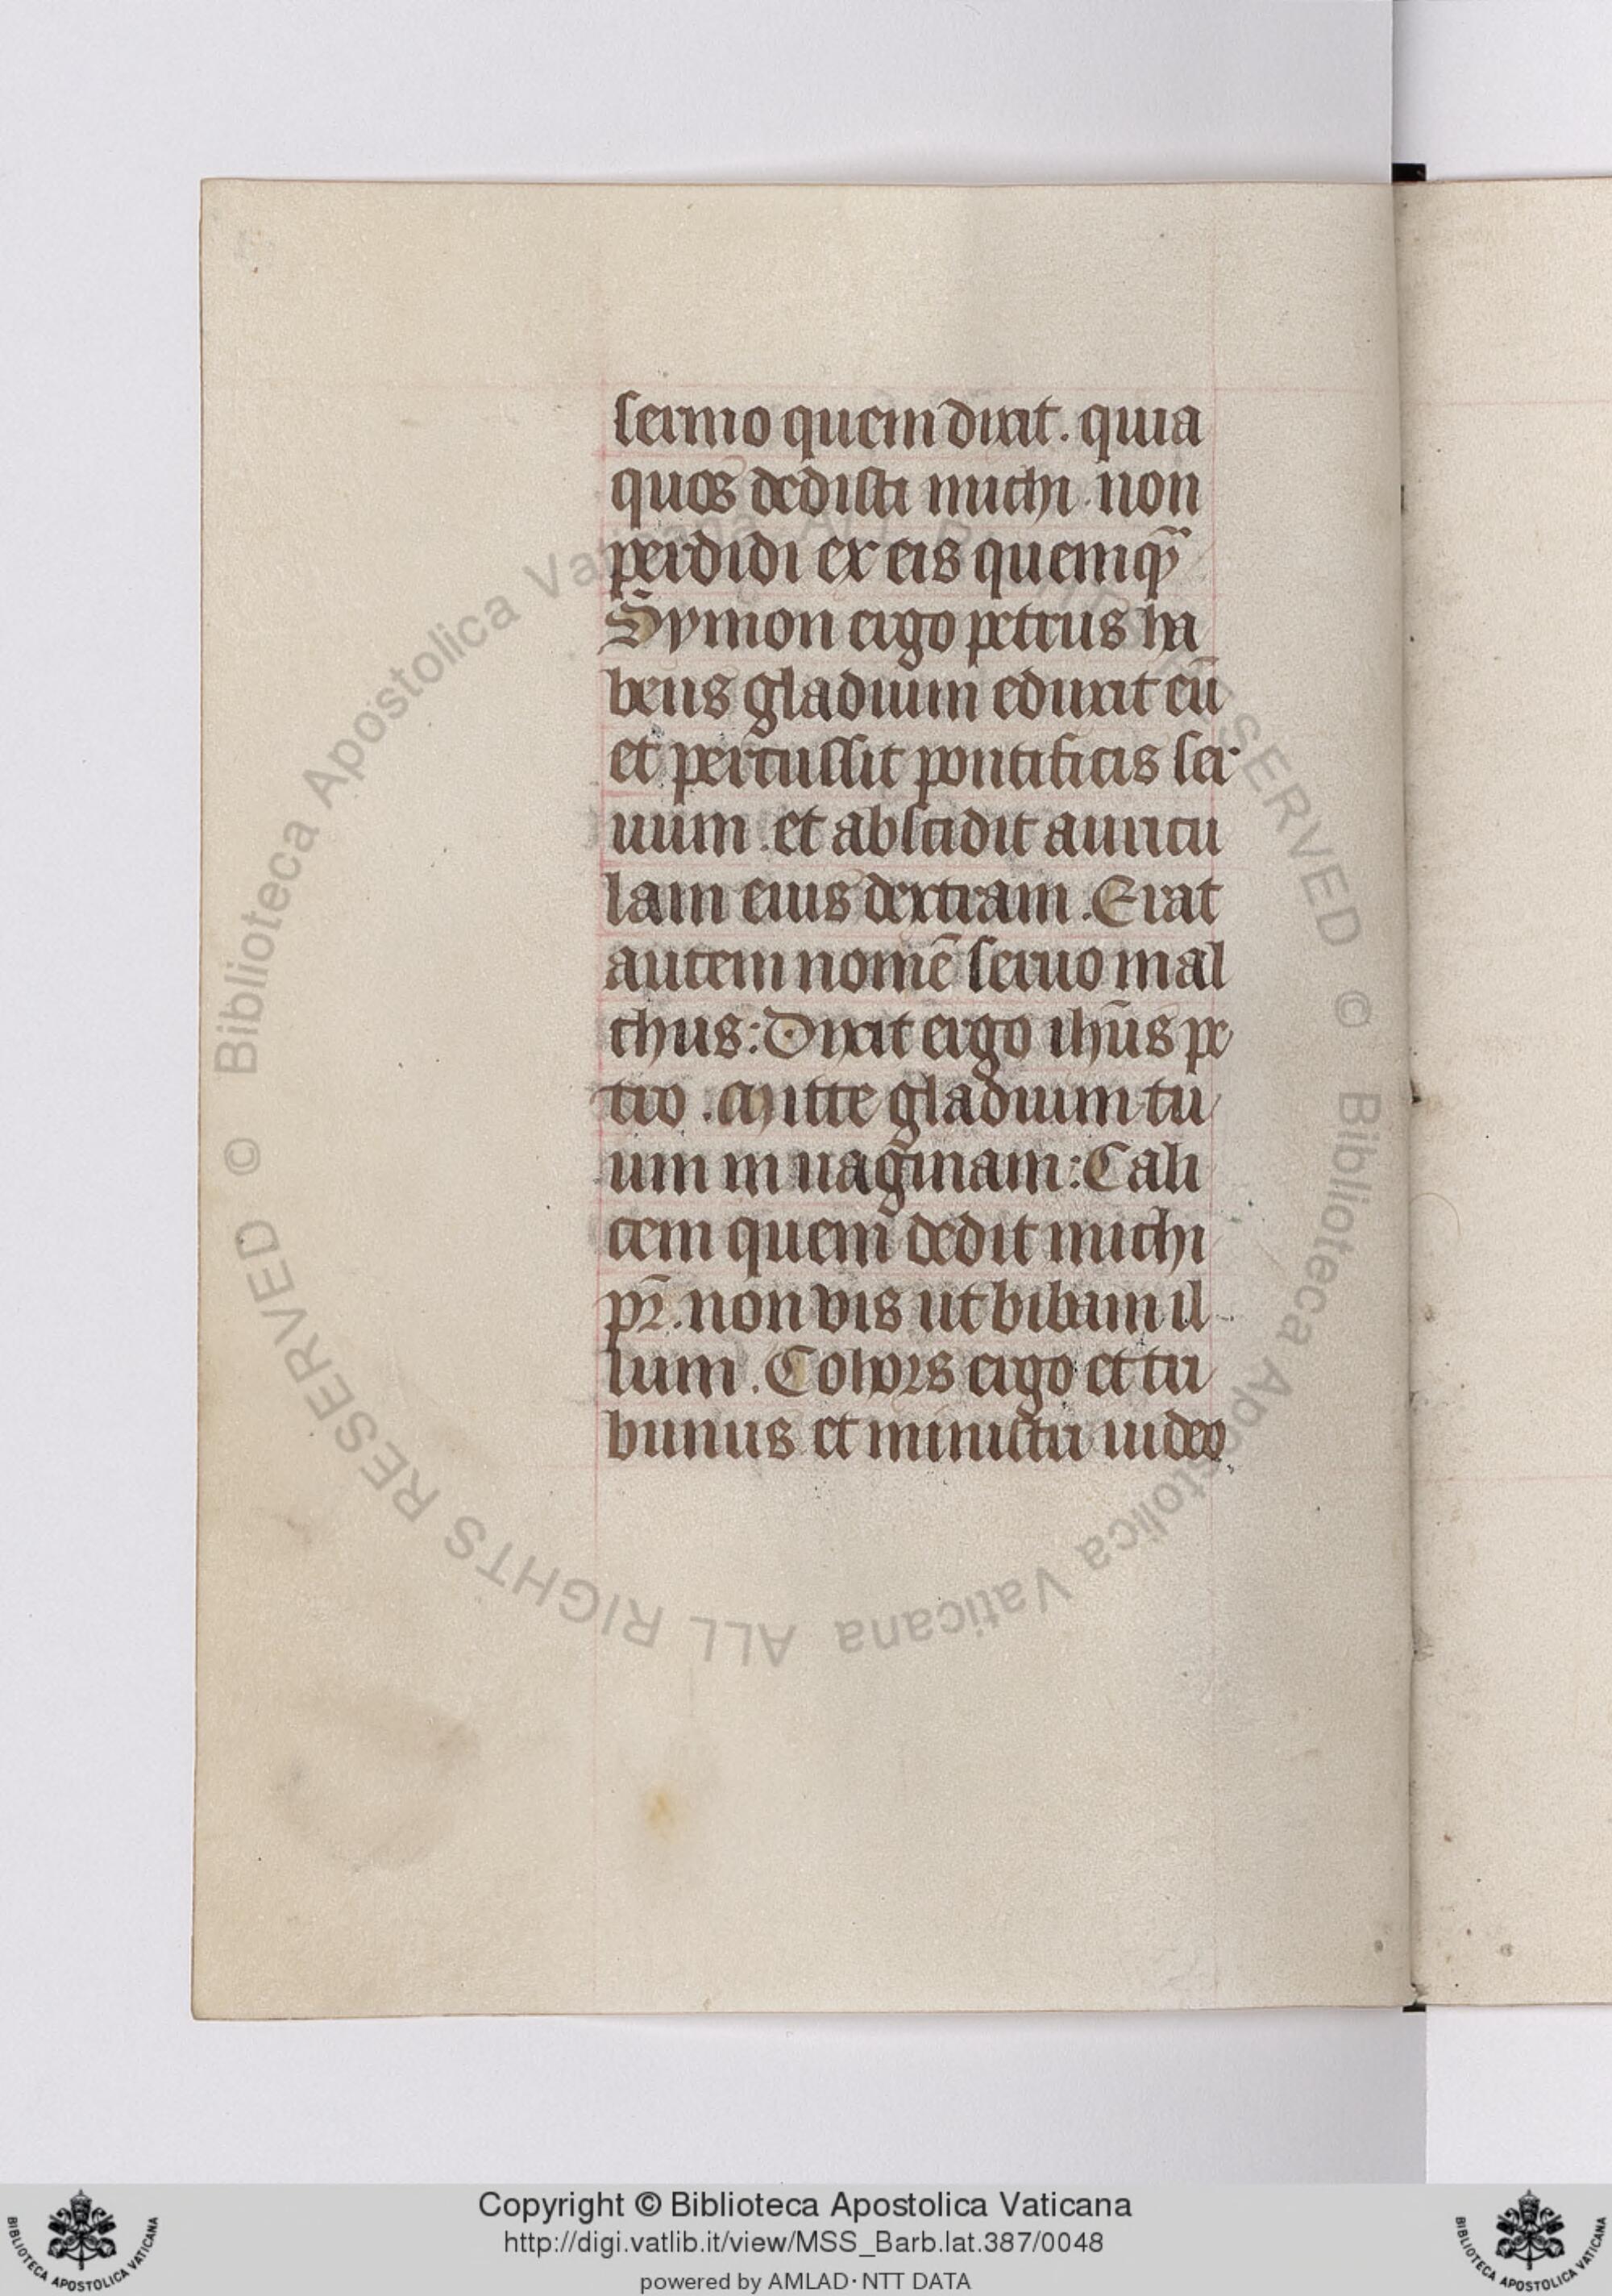 sermo quem dixit. quia
quos dedisti michi. non
perdidi ex eis quemqͣ
Symon ergo petrus ha
bens gladium eduxit eū
et percussit pontificis ser
uum. et abscidit auricu
lam eius dextram. Erat
autem nomē seruo mal
chus: Dixit ergo ihūs pe
tro. Mitte gladium tu
um in uaginam: Cali
cem quem dedit michi
pr̄. non vis ut bibam il
lum. Cohors ergo et tri
bunus et ministri iudeo
Biblioteca Apostolica Vaticana ALL RIGHTS RESERVED ©
Biblioteca Apostolica Vaticana ALL RIGHTS RESERVED ©
Copyright © Biblioteca Apostolica Vaticana
http://digi.vatlib.it/view/MSS_Barb.lat.387/0048
powered by AMLAD·NTT DATA
BIBLIOTECA APOSTOLICA VATICANA
BIBLIOTECA APOSTOLICA VATICANA